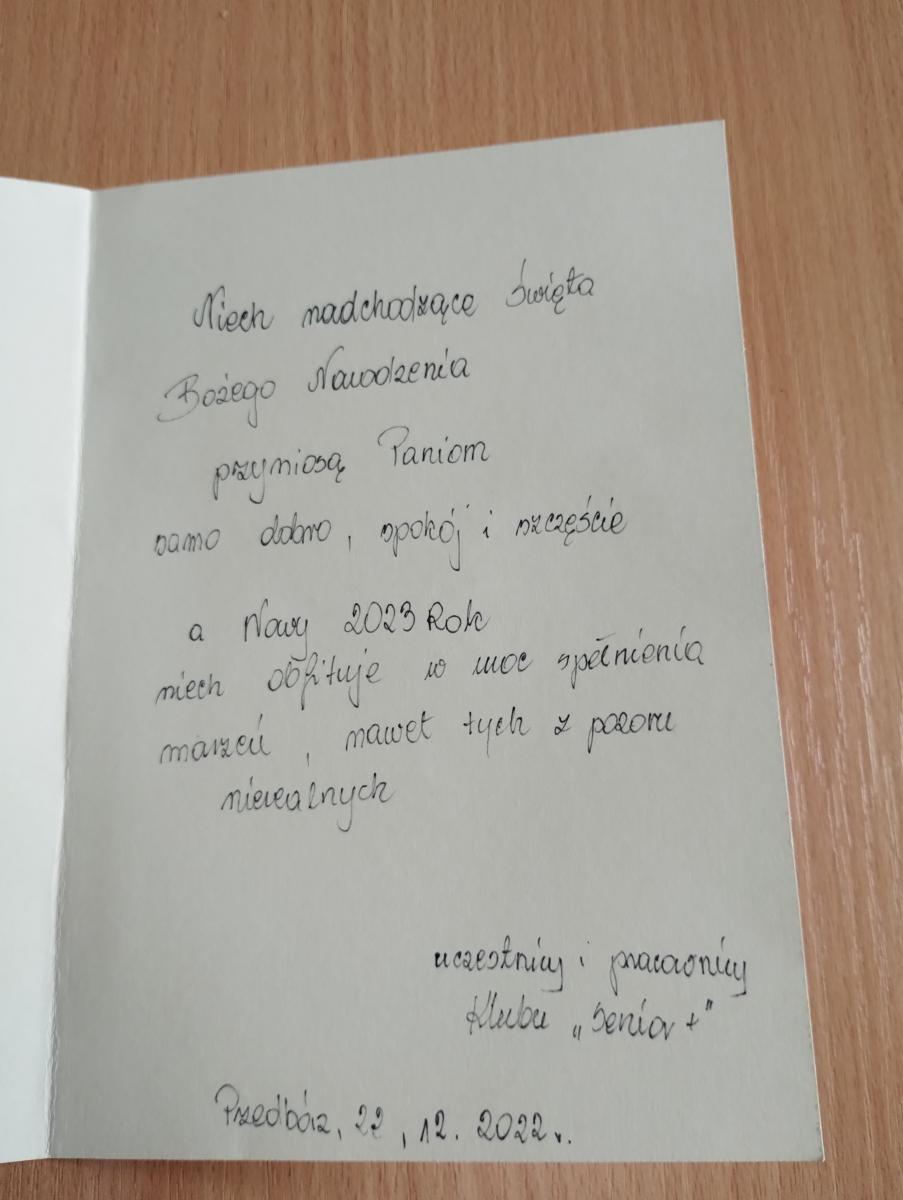 Niech nadchodzące Święta
Bożego Narodzenia
przyniosą Paniom
samo dobro, spokój i szczęście
a Nowy 2023 Rok
niech obfituje w moc spełnienia
marzeń, nawet tych z pozoru
nierealnych
uczestnicy i pracownicy
Klubu „Senior +"
Przedbórz, 22, 12. 2022r.